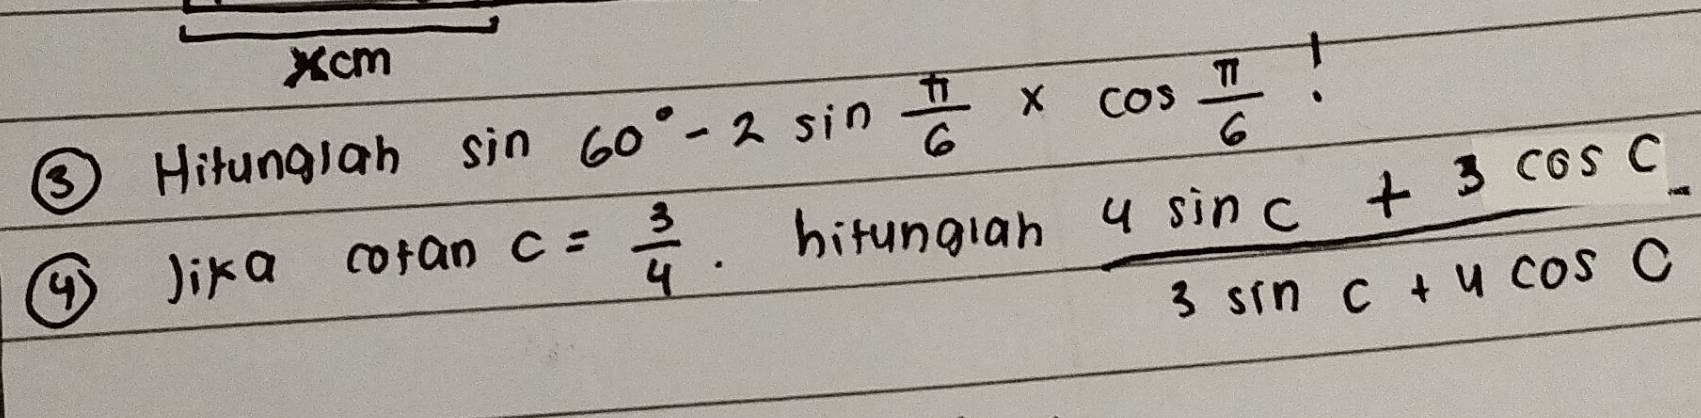 x cm
③ Hitunglah sin 60° - 2 sin π/6 × cos π/6 !
④ Jika cotan C = 3/4 . hitunglah (4 sin C + 3 cos C)/(3 sin C + 4 cos C)